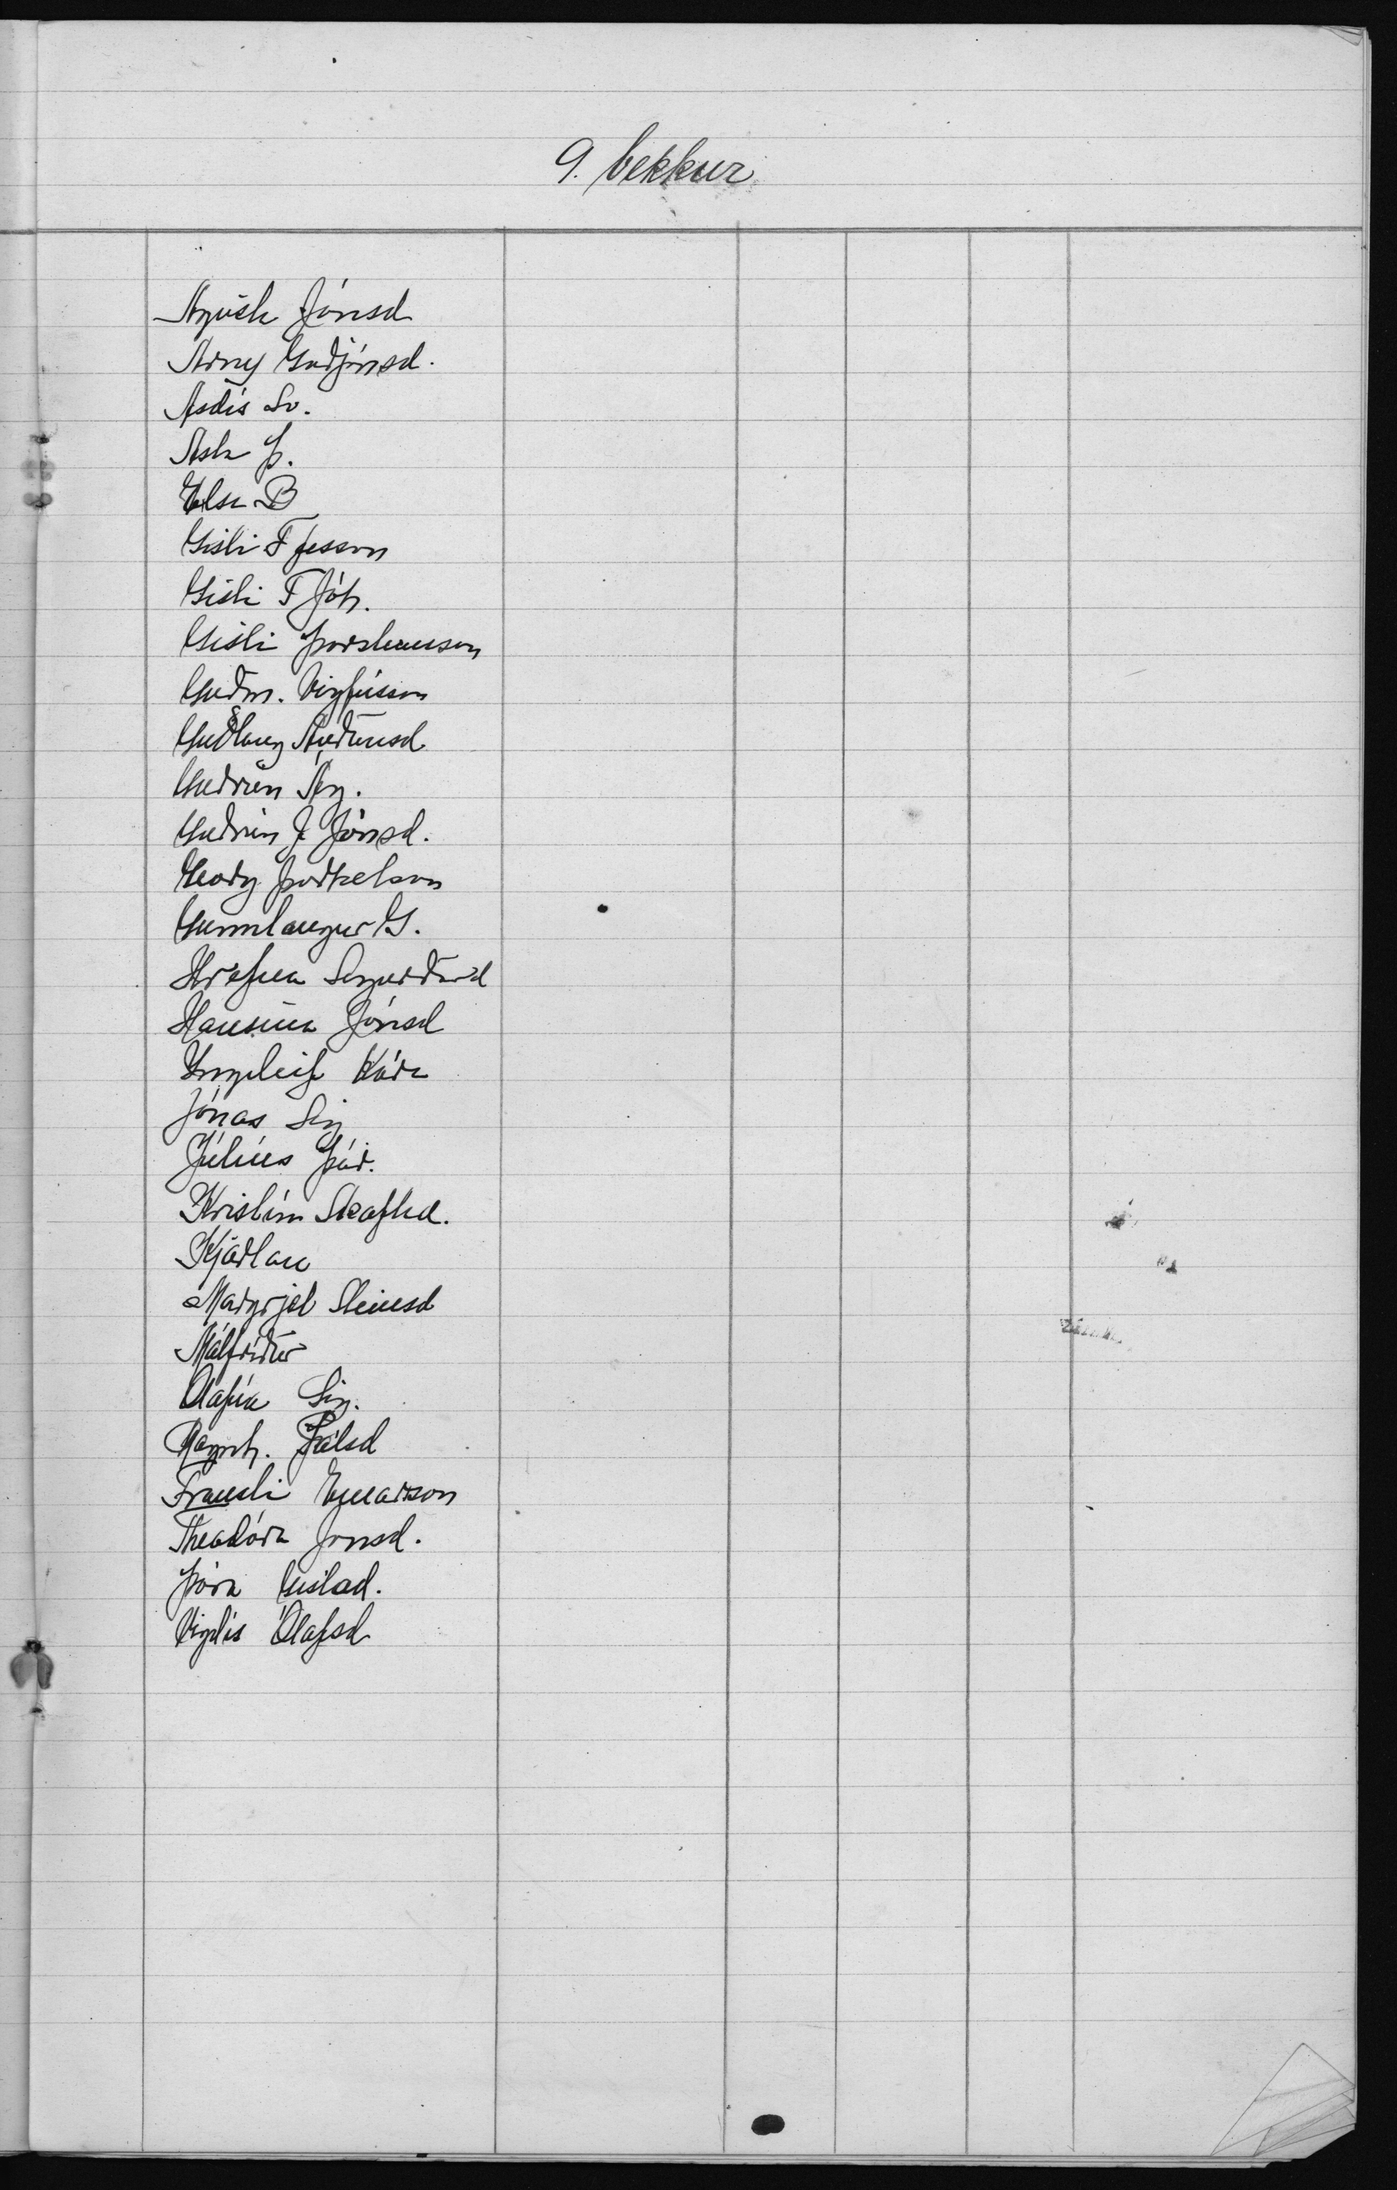 9. bekkur
Ágústa Jónsd
Árny Guðjónsd.
Ásdís Sv.
Ásta Þ.
Elsa B
Gísli F Jesson
Gísli F Jóh.
Gísli Þorsteinsson
Guðm. Vigfússon
Guðlaug Auðunsd
Guðrún Ág.
Guðrún J. Jónsd.
Georg Þorkelson
Gunnlaugur G.
Hrefna Sigurðard
Hansína Jónsd
Ingileif Kára
Jónas Sig
Júlíus Þór.
Kristín Skaftad.
Kjartan
Margrjet Steinsd
Málfríður
Ólafía Sig.
Ragnh. Pálsd
Trausti Einarson
Theodóra Jónsd.
Þóra Gíslad.
Vigdís Ólafsd